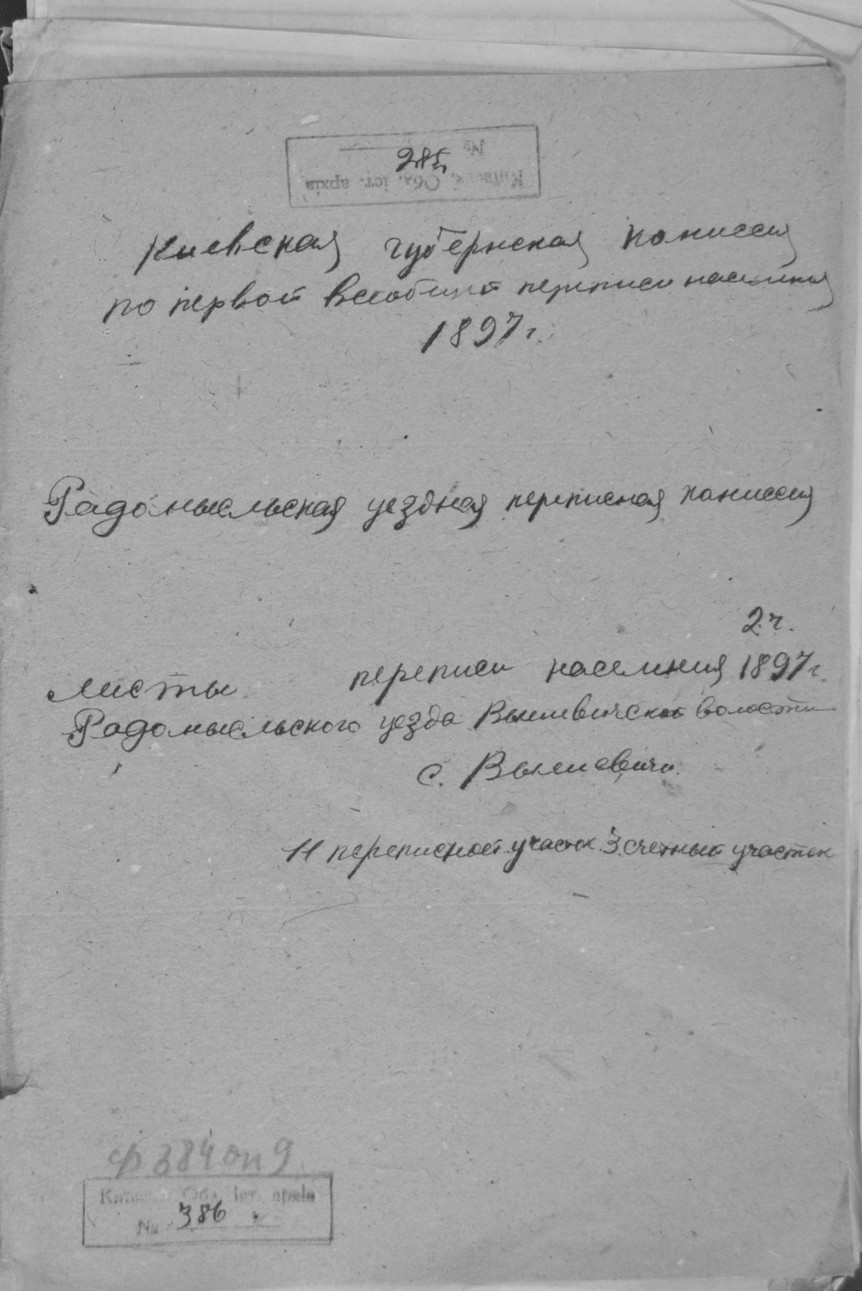 № 285
Київськ. Обл. іст. архів
Киевская губернская комиссия
по первой всеобщей переписи населения
1897 г.
Радомысльская уездная переписная комиссия
2 ч.
Листы переписи населения 1897 г.
Радомысльского уезда Вышевичской волости
с. Вышевичи.
11 переписной участок 3 счетный участок
ф 384 оп 9
Київськ. Обл. іст. архів
№ 386